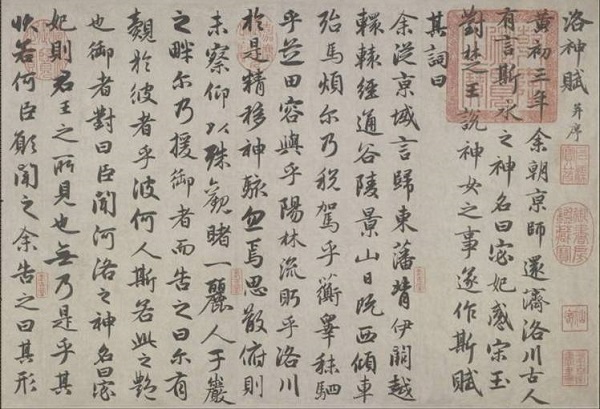 洛神賦 并序
黃初三年余朝京師還濟洛川古人
有言斯水之神名曰宓妃感宋玉
對楚王說神女之事遂作斯賦
其詞曰
余從京域言歸東藩背伊闕越
轘轅經通谷陵景山日既西傾車
殆馬煩尔乃稅駕乎蘅皋秣駟
乎芝田容與乎陽林流眄乎洛川
於是精移神駭忽焉思散俯則
未察仰以殊觀睹一麗人于巖
之畔尔乃援御者而告之曰尔有
覿於彼者乎彼何人斯若此之艷
也御者對曰臣聞河洛之神名曰宓
妃則君王之所見也無乃是乎其
狀若何臣願聞之余告之曰其形